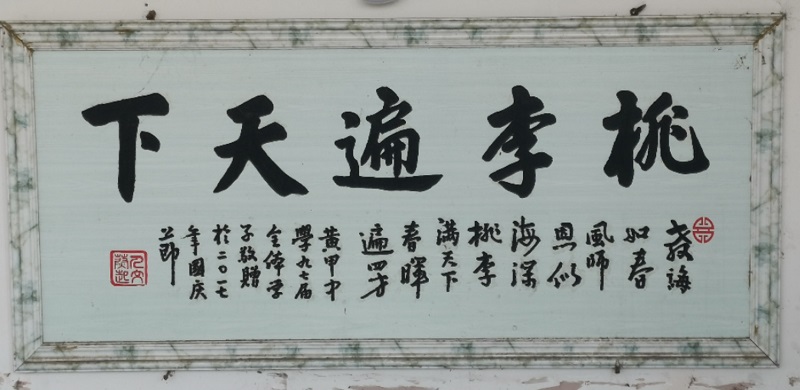 桃李遍天下
教诲
如春
風師
恩似
海深
桃李
满天下
春暉
遍四方
黄甲中
學九七届
全体学
子敬贈
於二〇一七
年國庆
节